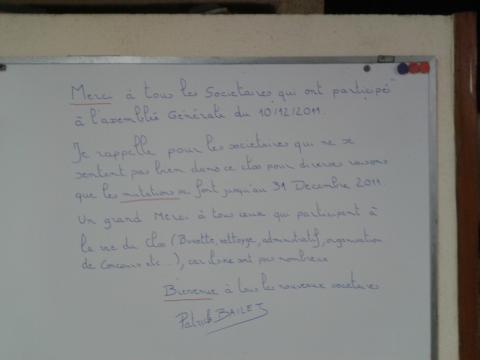 Merci à tous les Societaires qui ont participés
à l'assemblée Générale du 10/12/2011.
Je rappelle pour les societaires qui ne se
sentent pas bien dans ce clos pour diverses raisons
que les mutations se font jusqu'au 31 Decembre 2011.
Un grand Merci à tous ceux qui participent à
la vie du Clos (Buvette, nettoyge, administratif, organisation
de Concours etc...), car ils ne sont pas nombreux
Bienvenue à tous les nouveaux societaires
Patrick BAILET